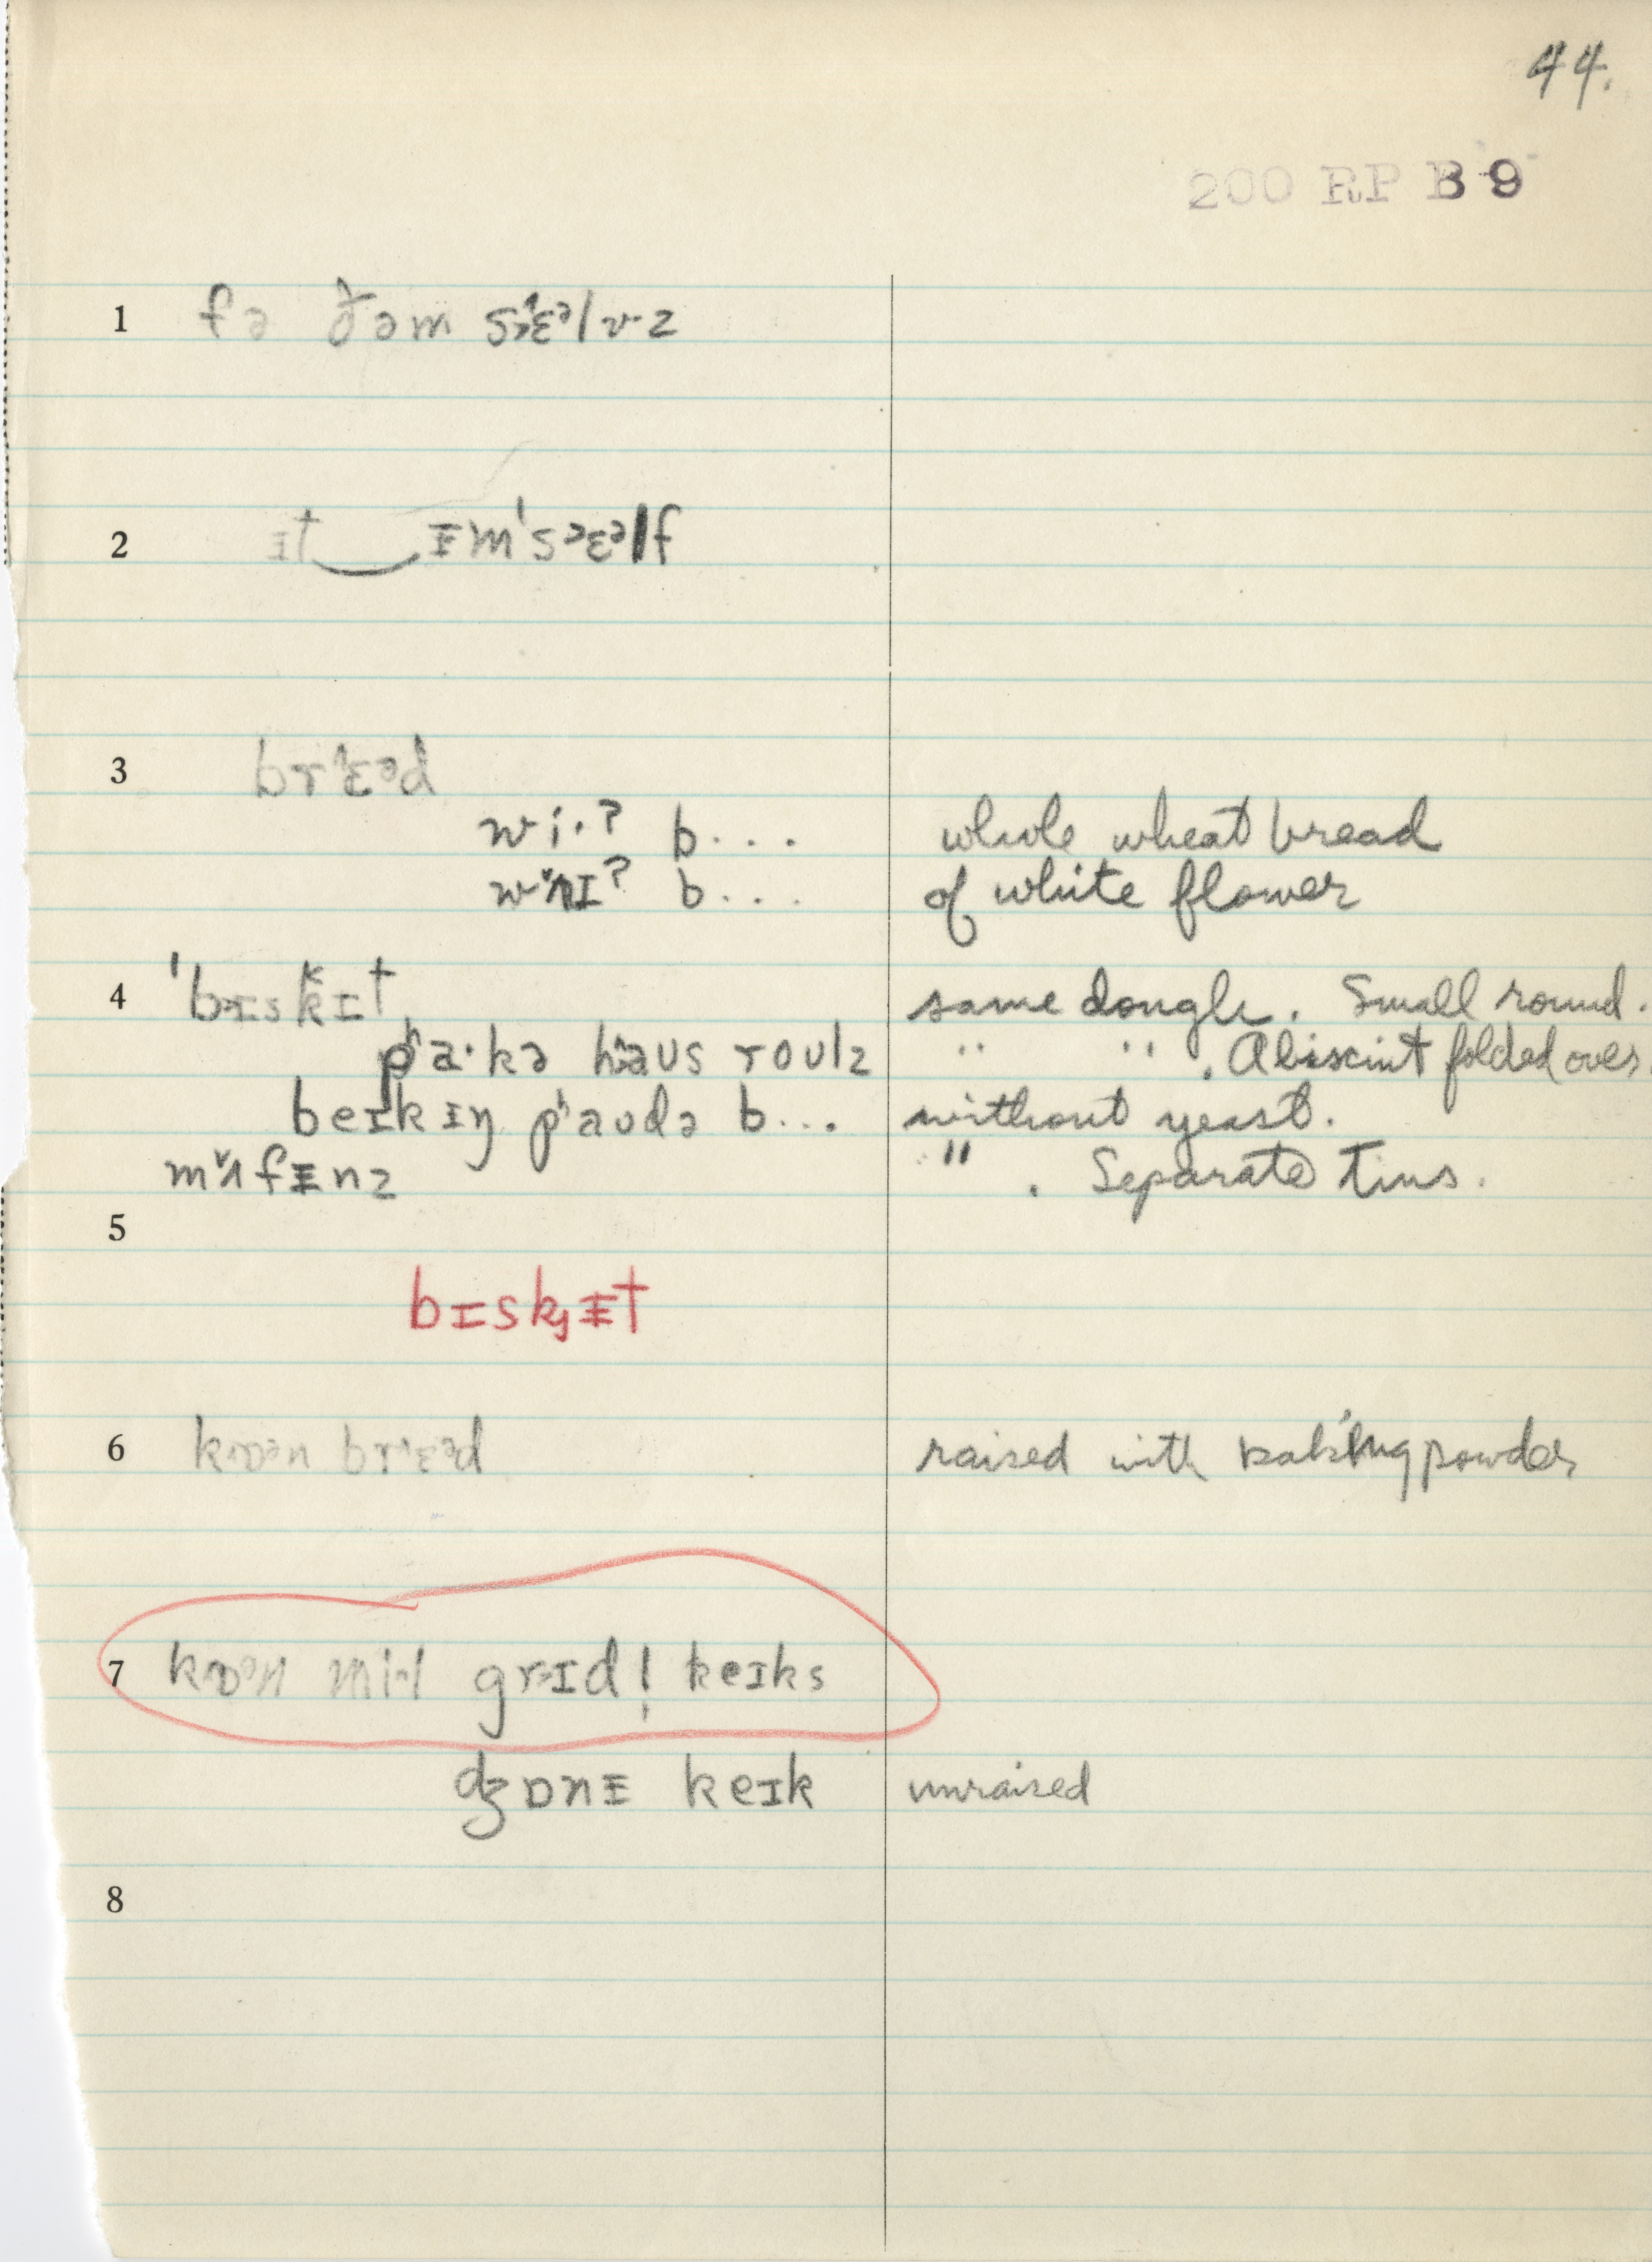 44.
200 RP B 9
1 fə ðəm sᵊ'ɛᵊlvz
2 ɪt‿ᵻm'sᵊɛᵊlf
3 brɛᵊd
wi·ʔ b.... whole wheat bread
wʌɪʔ b... of white flower
4 'bɪskɪt same dough. Small round.
pʰa·kə haus roulz " " . A biscint folded over.
beɪkɪŋ pʰaudə b... without yeast.
mʌfᵻnz " . Separate Tins.
5
bɪskᵻt
6 kɒᵊn brɛᵊd raised with baking powder
7 kɒᵊn mil grɪdl̩ keɪks
dʒɒnᵻ keɪk unraised
8